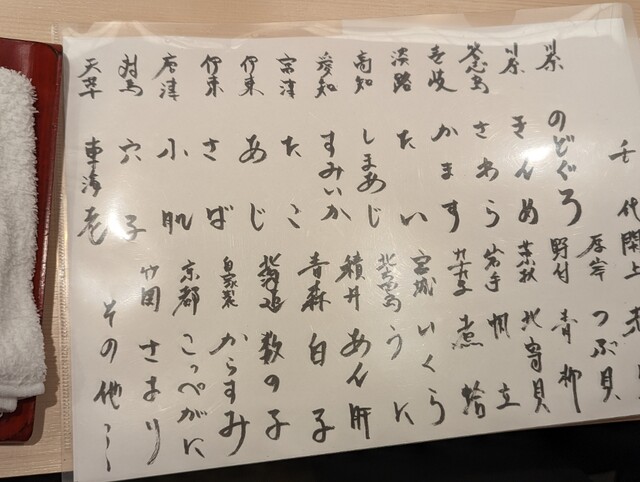 千代
のどぐろ
きんめ
さわら
壱岐 かます
淡路 たい
高知 しまあじ
愛知 すみいか
富津 たこ
伊東 あじ
伊東 さば
唐津 小肌
対馬 穴子
天草 車海老
閖上 赤
厚岸 つぶ貝
野付 青柳
北寄貝
岩手 帆立
煮蛤
宮城 いくら
うに
積丹 あん肝
青森 白子
北海道 数の子
自家製 からすみ
京都 こっぺがに
竹岡 さより
その他〜